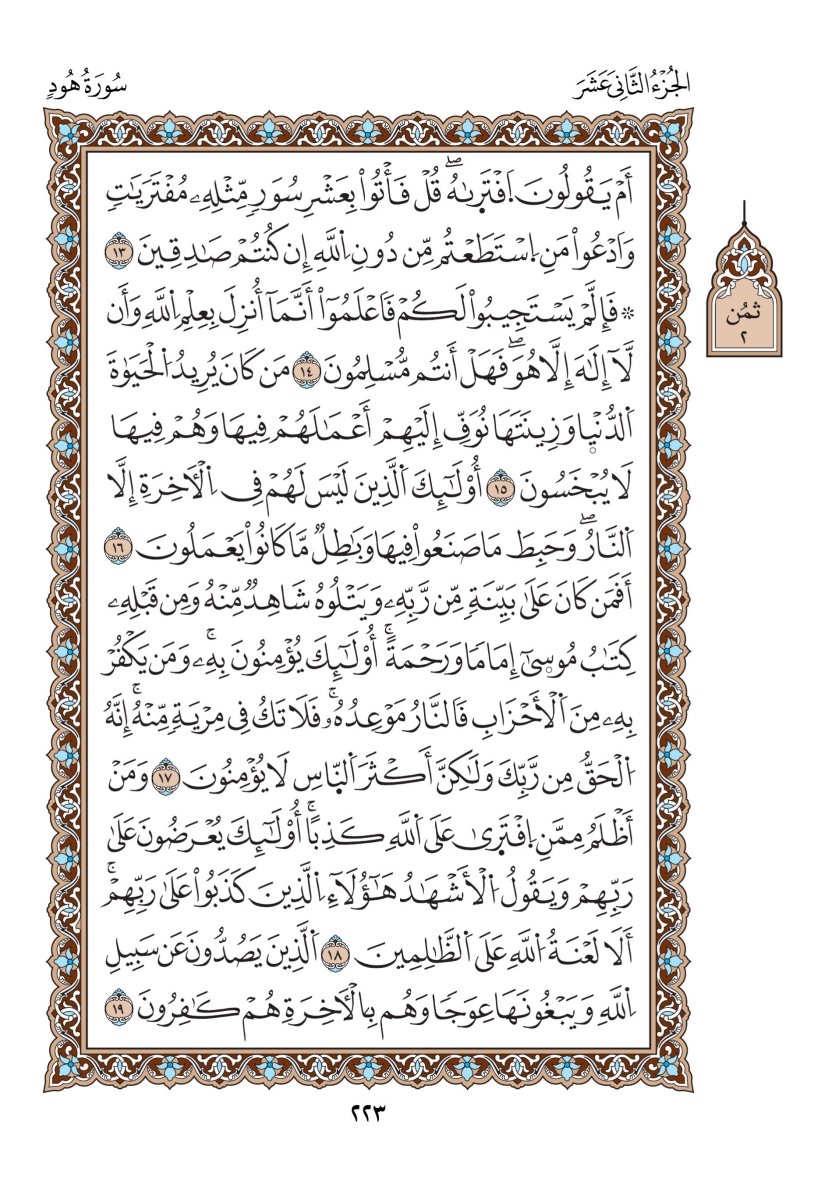 الجُزْءُ الثَّانِي عَشَرَ
سُورَةُ هُودٍ
أَمْ يَقُولُونَ اَفْتَرٜىٰهُۖ قُلْ فَأْتُواْ بِعَشْرِ سُوَرٖ مِّثْلِهِۦ مُفْتَرَيَٰتٖ
وَادْعُواْ مَنِ اِسْتَطَعْتُم مِّن دُونِ اِللَّهِ إِن كُنتُمْ صَٰدِقِينَ ١٣
۞ فَإِلَّمْ يَسْتَجِيبُواْ لَكُمْ فَاعْلَمُوٓاْ أَنَّمَآ أُنزِلَ بِعِلْمِ اِللَّهِ وَأَن
لَّآ إِلَٰهَ إِلَّا هُوَۖ فَهَلْ أَنتُم مُّسْلِمُونَ ١٤ مَن كَانَ يُرِيدُ اُلْحَيَوٰةَ
اَلدُّنْيٜا وَزِينَتَهَا نُوَفِّ إِلَيْهِمْ أَعْمَٰلَهُمْ فِيهَا وَهُمْ فِيهَا
لَا يُبْخَسُونَ ١٥ أُوْلَٰٓئِكَ اَلَّذِينَ لَيْسَ لَهُمْ فِي اِلْأٓخِرَةِ إِلَّا
اَلنَّارُۖ وَحَبِطَ مَا صَنَعُواْ فِيهَا وَبَٰطِلٞ مَّا كَانُواْ يَعْمَلُونَ ١٦
أَفَمَن كَانَ عَلَىٰ بَيِّنَةٖ مِّن رَّبِّهِۦ وَيَتْلُوهُ شَاهِدٞ مِّنْهُ وَمِن قَبْلِهِۦ
كِتَٰبُ مُوسٜىٰٓ إِمَامٗا وَرَحْمَةًۚ أُوْلَٰٓئِكَ يُؤْمِنُونَ بِهِۦۚ وَمَن يَكْفُرْ
بِهِۦ مِنَ اَلْأَحْزَابِ فَالنَّارُ مَوْعِدُهُۥۚ فَلَا تَكُ فِي مِرْيَةٖ مِّنْهُۚ إِنَّهُ
اُلْحَقُّ مِن رَّبِّكَ وَلَٰكِنَّ أَكْثَرَ اَلنّٜاسِ لَا يُؤْمِنُونَ ١٧ وَمَنْ
أَظْلَمُ مِمَّنِ اِفْتَرٜىٰ عَلَى اَللَّهِ كَذِبًاۚ أُوْلَٰٓئِكَ يُعْرَضُونَ عَلَىٰ
رَبِّهِمْ وَيَقُولُ اُلْأَشْهَٰدُ هَٰٓؤُلَآءِ اِلَّذِينَ كَذَبُواْ عَلَىٰ رَبِّهِمْۚ
أَلَا لَعْنَةُ اُللَّهِ عَلَى اَلظَّٰلِمِينَ ١٨ اَلَّذِينَ يَصُدُّونَ عَن سَبِيلِ
اِللَّهِ وَيَبْغُونَهَا عِوَجٗا وَهُم بِالْأٓخِرَةِ هُمْ كَٰفِرُونَ ١٩
ثُمُن
٢
٢٢٣